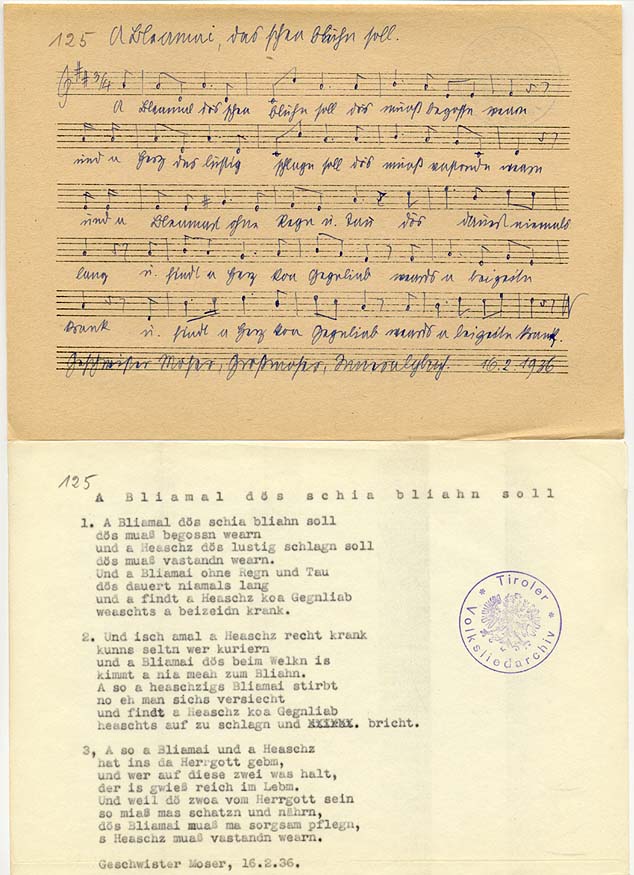 125 A Bleamai, das schen blühn soll.
3/4
A Bleamal dös schen blühn soll dös muaß begossn wearn
und a Herz das lustig schlagn soll dös muaß vastandn wearn
und a Bleamal ohne Regn u. Tau dös dauert niemals
lang u. findt a Herz koa Gegnliab weards a beizeiten
krank u. findt a Herz koa Gegnliab weards a beizeitn krank.
Geschwister Moser, Großmoser, 16.2.1936
125
A Bliamal dös schia bliahn soll
1. A Bliamal dös schia bliahn soll
dös muaß begossn wearn
und a Heaschz dös lustig schlagn soll
dös muaß vastandn wearn.
Und a Bliamai ohne Regn und Tau
dös dauert niamals lang
und a findt a Heaschz koa Gegnliab
weaschts a beizeidn krank.
2. Und isch amal a Heaschz recht krank
kunns seltn wer kuriern
und a Bliamai dös beim Welkn is
kimmt a nia meah zum Bliahn.
A so a heaschzigs Bliamai stirbt
no eh man sichs versiecht
und findt a Heaschz koa Gegnliab
heaschts auf zu schlagn und xxxxxx. bricht.
3, A so a Bliamai und a Heaschz
hat ins da Herrgott gebm,
und wer auf diese zwei was halt,
der is gwieß reich im Lebm.
Und weil dö zwoa vom Herrgott sein
so miaß mas schatzn und nährn,
dös Bliamai muaß ma sorgsam pflegn,
s Heaschz muaß vastandn wearn.
Geschwister Moser, 16.2.36.
* Tiroler *
Volksliedarchiv